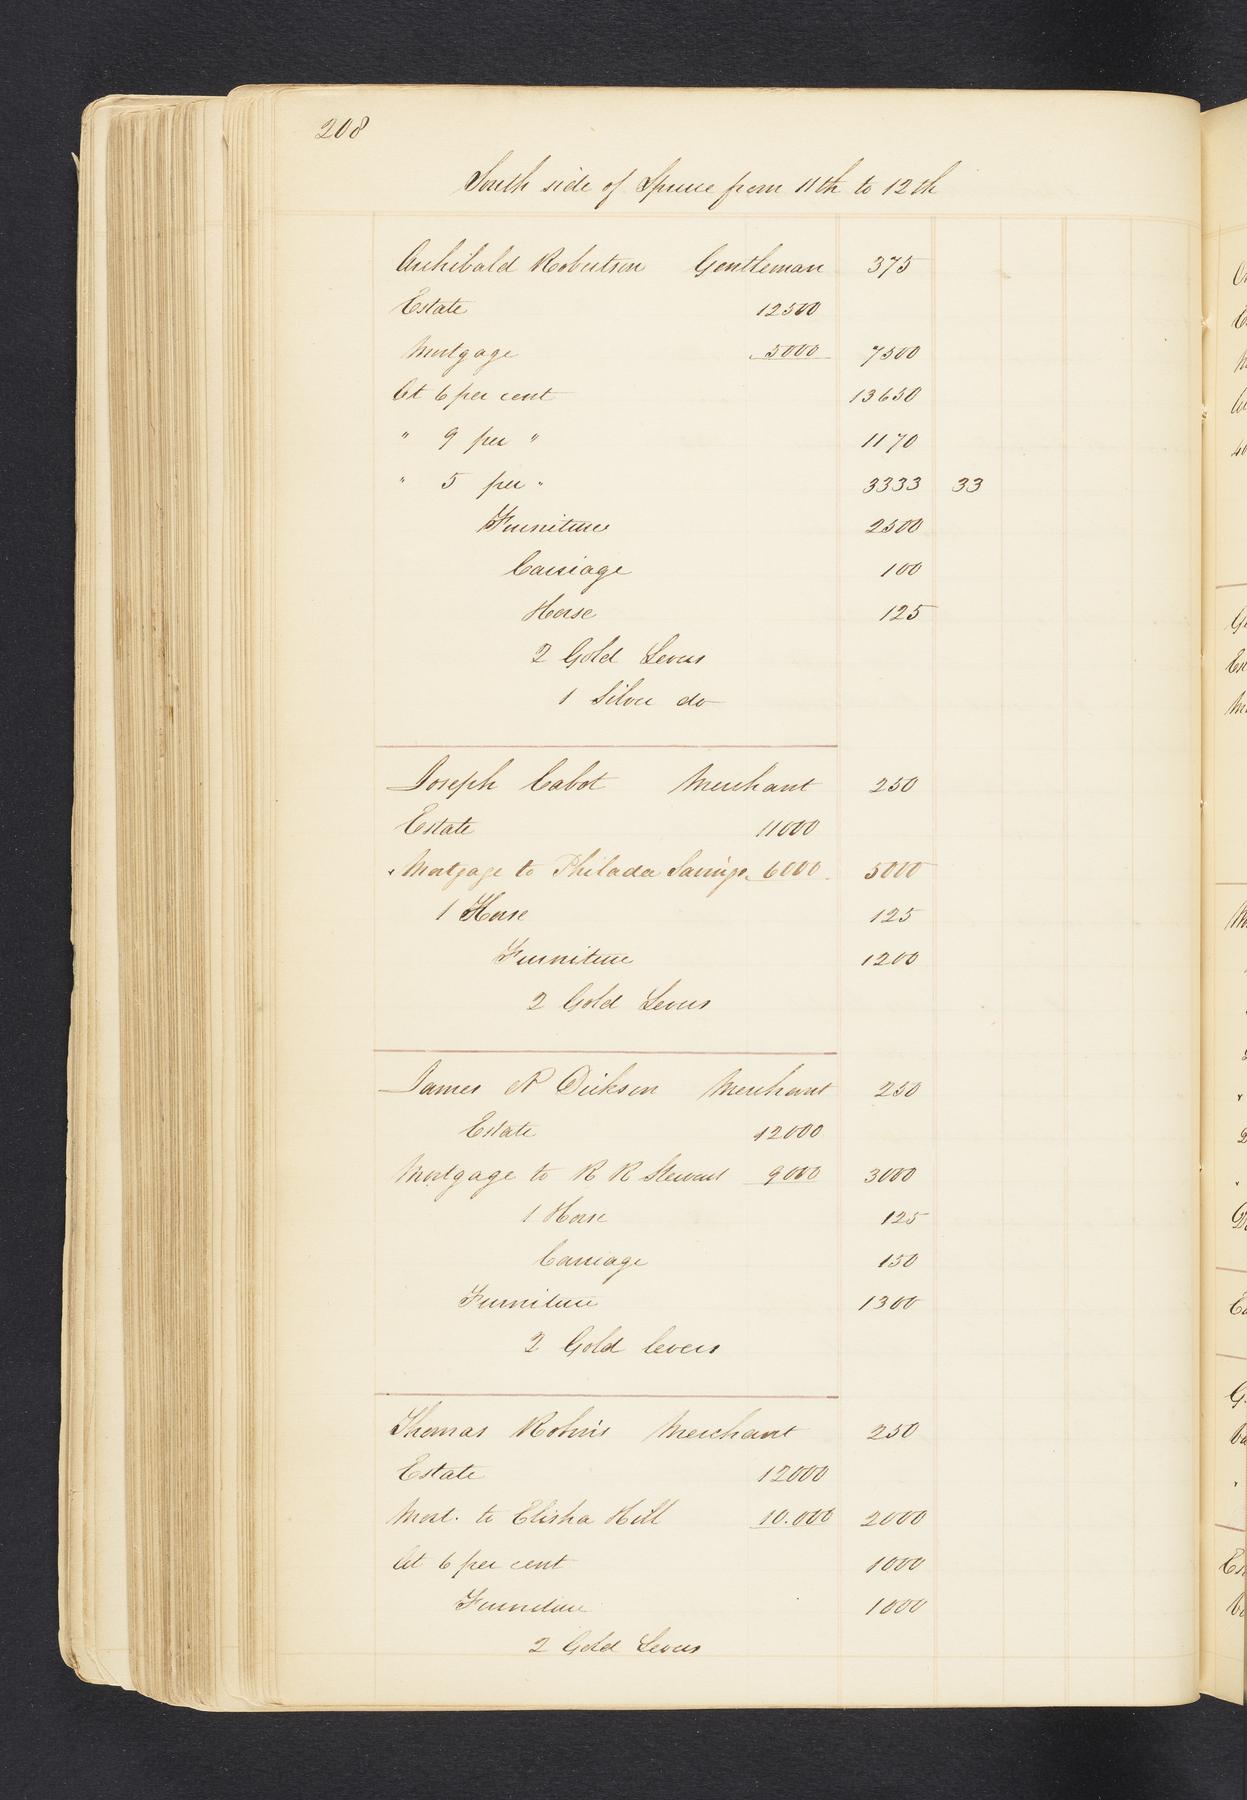 208
South side of Spruce from 11th to 12th
Archibald Robertson Gentleman 375
Estate 12500
Mortgage 5000 7500
At 6 per cent 13650
" 9 per " 1170
" 5 per " 3333 33
Furniture 2500
Carriage 100
Horse 125
2 Gold Levers
1 Silver do
Joseph Cabot Merchant 250
Estate 11000
Mortgage to Philada Savings 6000 5000
1 Horse 125
Furniture 1200
2 Gold Levers
James N Dickson Merchant 250
Estate 12000
Mortgage to R R Stewart 9000 3000
1 Horse 125
Carriage 150
Furniture 1300
2 Gold levers
Thomas Robins Merchant 250
Estate 12000
Mort. to Elisha Hill 10.000 2000
At 6 per cent 1000
Furniture 1000
2 Gold Levers